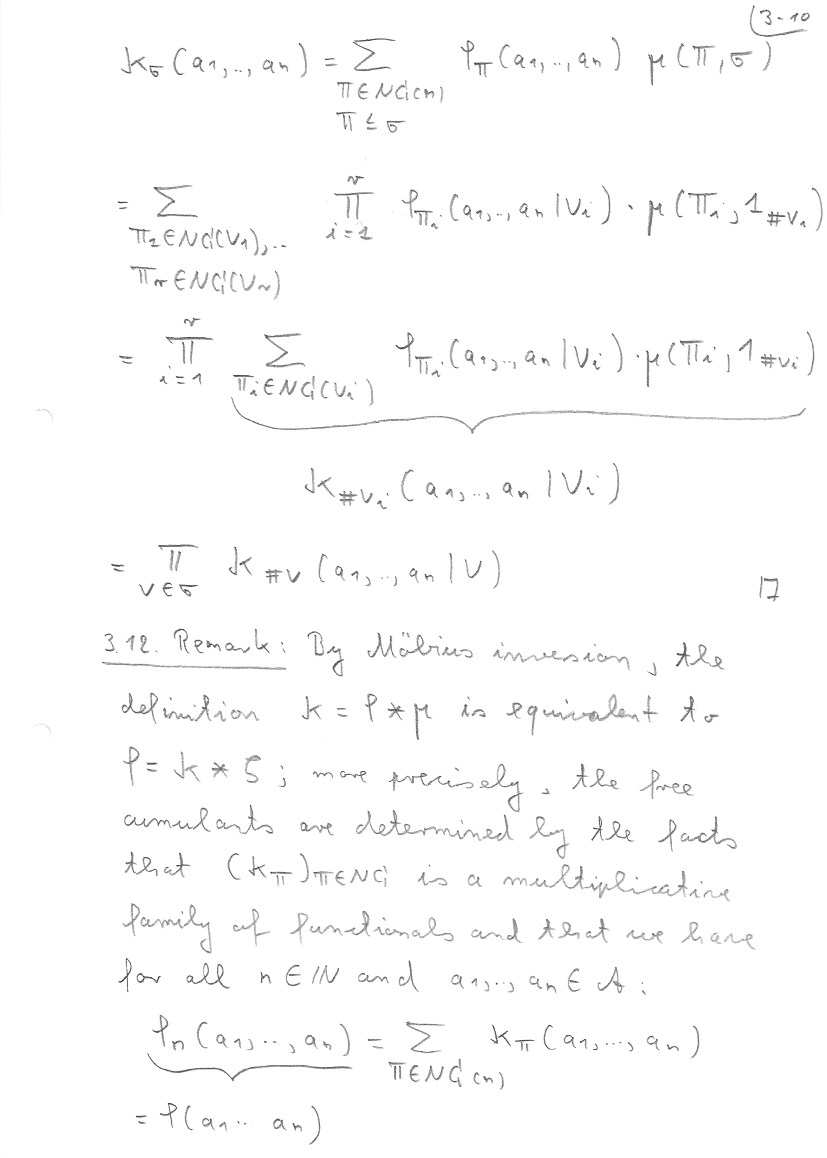 (3-10
k_σ(a_1,..,a_n) = Σ_{π∈NC(n), π≤σ} φ_π(a_1,..,a_n) μ(π,σ)
= Σ_{π_1∈NC(V_1),.. π_r∈NC(V_r)} ∏_{i=1}^{r} φ_{π_i}(a_1,..,a_n|V_i) · μ(π_i, 1_{#V_i})
= ∏_{i=1}^{r} Σ_{π_i∈NC(V_i)} φ_{π_i}(a_1,..,a_n|V_i) · μ(π_i, 1_{#V_i})
k_{#V_i}(a_1,..,a_n|V_i)
= ∏_{V∈σ} k_{#V}(a_1,..,a_n|V) □
3.12. Remark: By Möbius inversion, the
definition k = φ * μ is equivalent to
φ = k * ζ ; more precisely, the free
cumulants are determined by the facts
that (k_π)_{π∈NC} is a multiplicative
family of functionals and that we have
for all n ∈ ℕ and a_1,.., a_n ∈ A :
φ_n(a_1,..,a_n) = Σ_{π∈NC(n)} k_π(a_1,...,a_n)
= φ(a_1.. a_n)